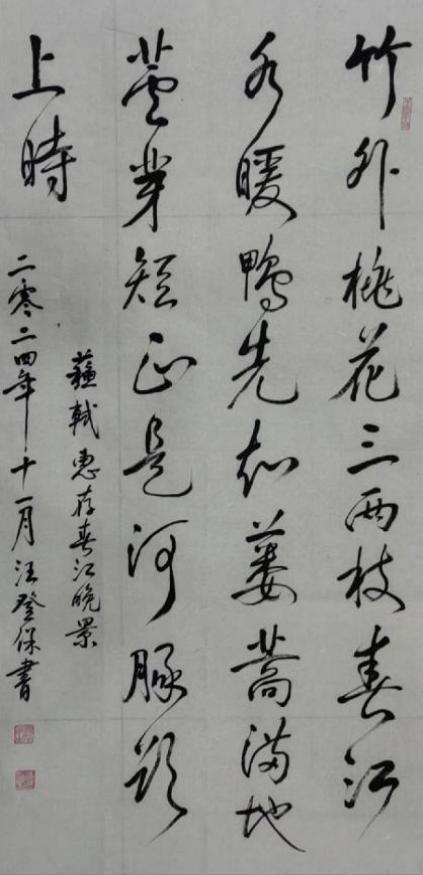 竹外桃花三两枝春江
水暖鴨先知蒌蒿满地
蘆芽短正是河豚欲
上時
蘇軾惠存春江晚景
二零二四年十一月汪登保書